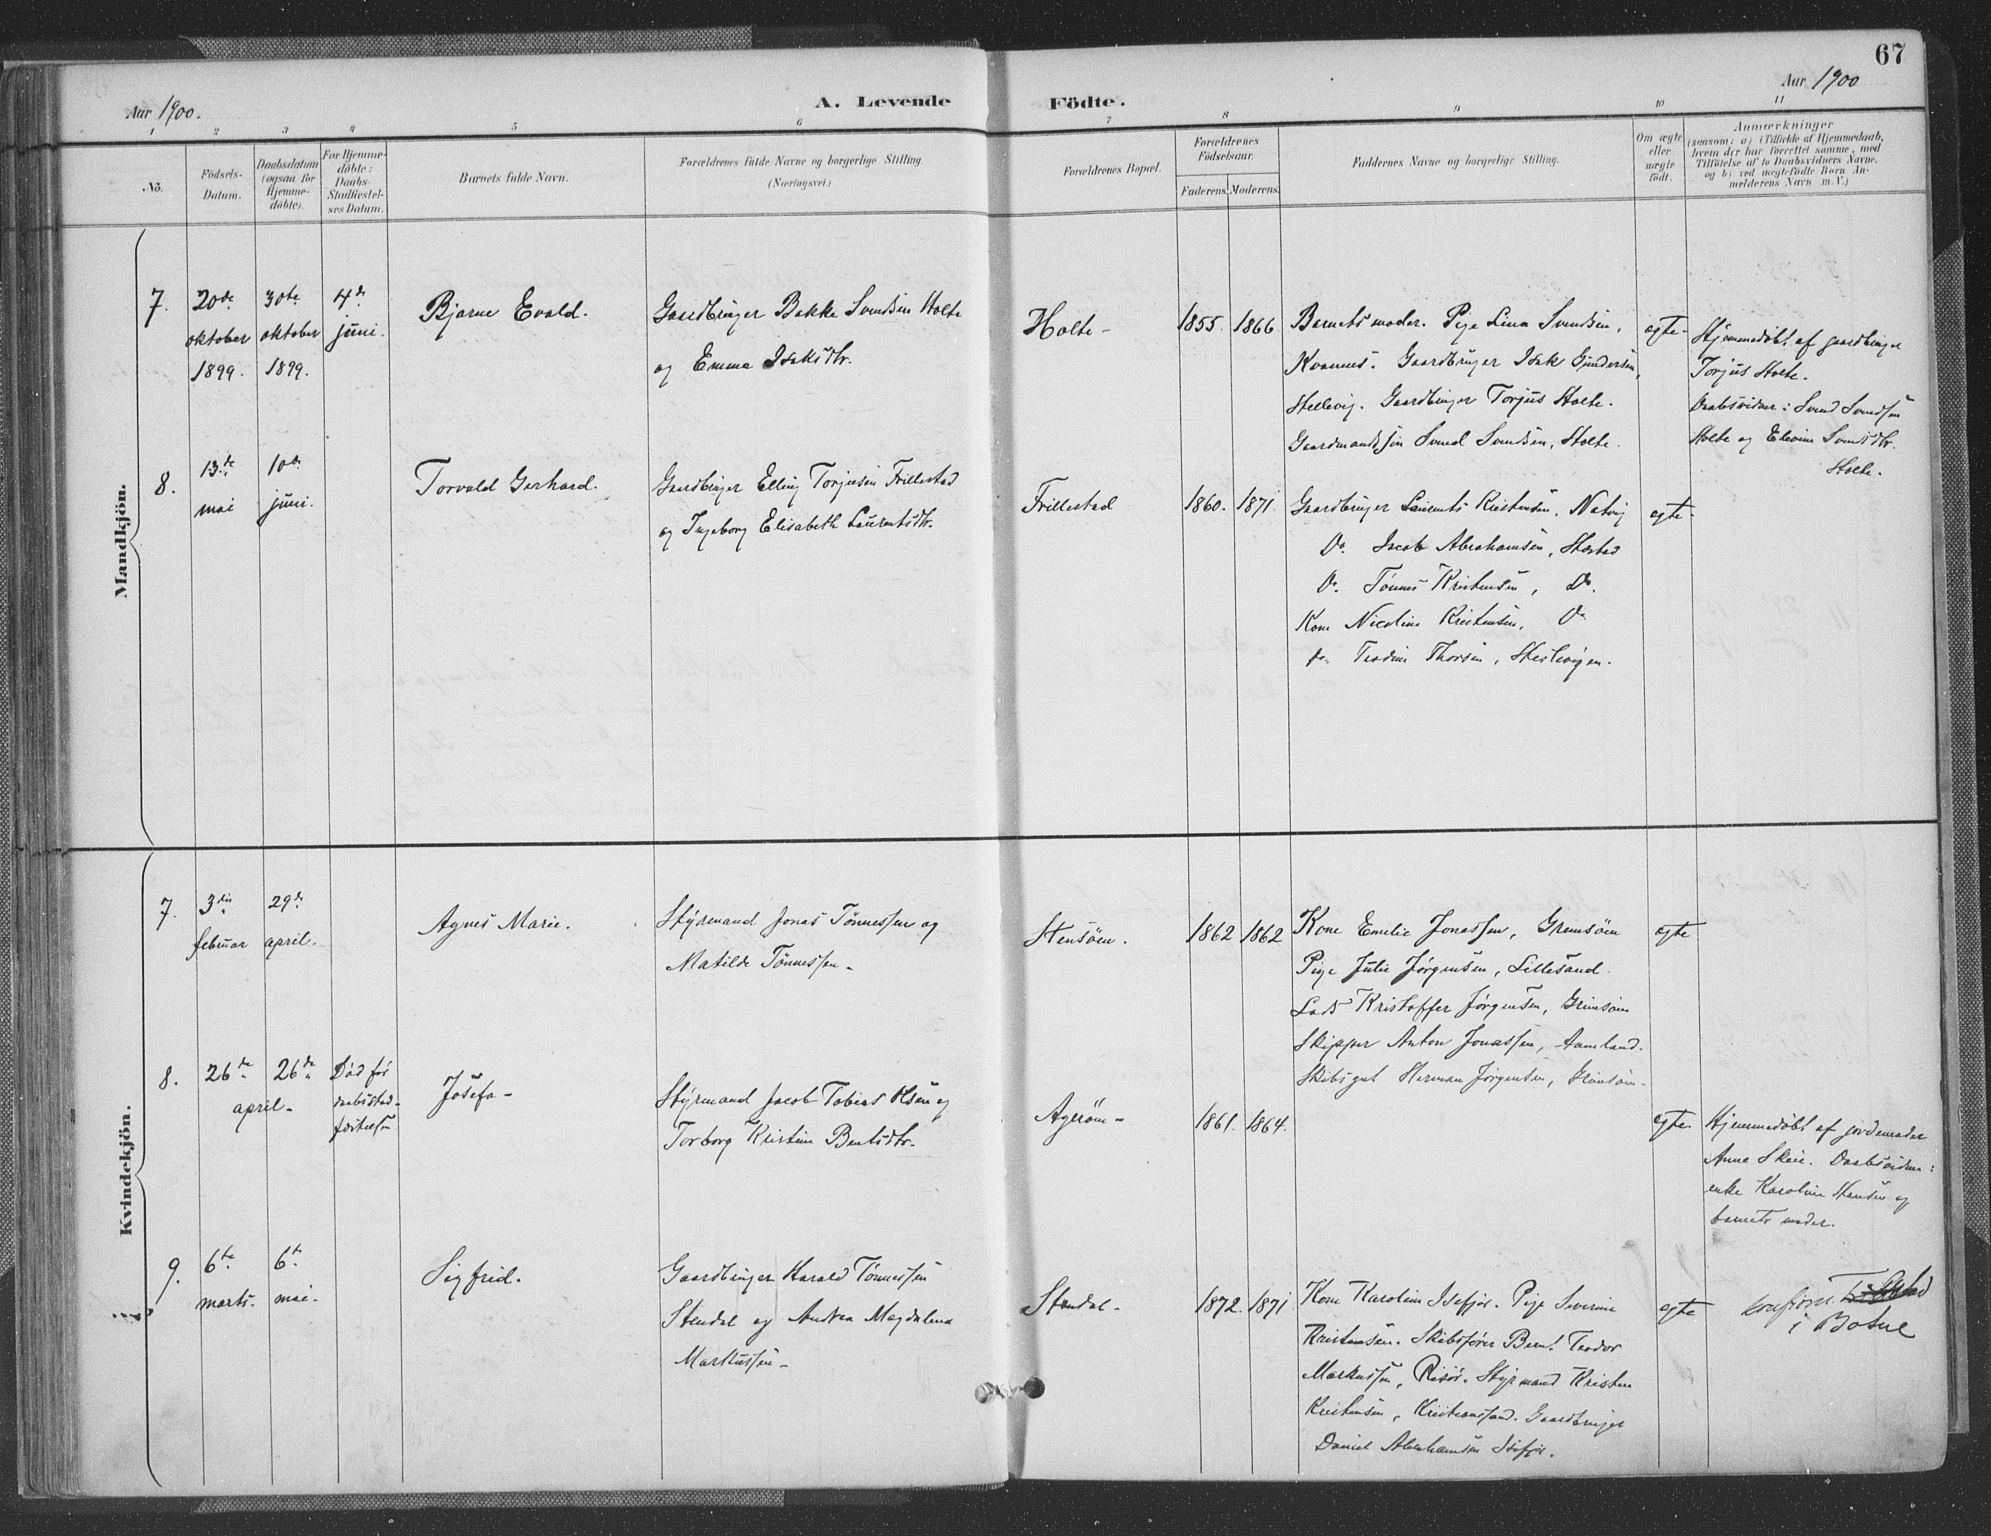 67
Aar 1900.
A. Levende Födte.
Aar 1900
1 2 3 4 5 6 7 8 9 10 11
No.
Födsels-
Datum.
Daabsdatum
(ogsaa for
Hjemme-
döbte).
For Hjemme-
döbte:
Daabs-
Stadfæstel-
ses Datum.
Barnets fulde Navn.
Forældrenes fulde Navne og borgerlige Stilling.
(Næringsvei.)
Forældrenes Bopæl.
Forældrenes
Födselsaar.
Faderens. Moderens.
Faddernes Navne og borgerlige Stilling.
Om ægte
eller
uægte
födt.
Anmærkninger
(saasom: a) i Tilfælde af Hjemmedaab,
hvem der har forrettet samme, med
Tilföielse af to Daabsvidners Navne.
og b) ved uægtefödte Börn An-
melderens Navn m. V.)
Mandkjön.
7.
20de
oktober
1899.
30te
oktober
1899.
4de
juni.
Bjarne Evald.
Gaardbruger Bakke Svendsen Holte
og Emma Isaksdtr.
Holte
1855. 1866
Barnets moder. Pige Lina Svendsen,
Kvannes. Gaardbruger Isak Gundersen,
Stellevig. Gaardbruger Torjus Holte.
Gaardmandssøn Svend Svendsen, Holte.
egte
Hjemmedøbt af gaardbruger
Torjus Holte.
Daabsvidner: Svend Svendsen
Holte og Elevine Svendsdtr.
Holte.
8.
13de
mai
10de
juni.
Torvald Gerhard.
Gaardbruger Elling Torjusen Frillestad
og Ingeborg Elisabeth Laurentsdtr.
Frillestad
1860. 1871.
Gaardbruger Laurents Kristensen, Natvig
Do. Jacob Abrahamsen,
Do. Tønnes Kristensen, Do.
Kone Nicoline Kristensen, Do
Do. Teodine Thorsen,
egte
Kvindekjön.
7.
3die
februar
29de
april
Agnes Marie.
Styrmand Jonas Tønnessen og
Matilde Tønnessen
Stensöen.
1862 1862
Kone Emelie Jonassen, Grimsöen
Pige Julie Jørgensen, Lillesand.
Lods Kristoffer Jørgensen, Grimsöen
Skipper Anton Jonassen, Aamland.
Skibsgut Herman Jørgensen, Grimsöen
egte
8.
26de
april
26de
Død før
daabsstad-
fæstelsen
Josefa
Styrmand Jacob Tobias Olsen og
Torborg Kristine Bentsdtr.
Agerøen
1861. 1864.
egte
Hjemmedøbt af jordemoder
Anne Skeie. Daabsvidner:
enke Karoline Hansen og
barnets moder.
9.
6te
marts.
6te
mai
Sigfrid.
Gaardbruger Harald Tønnessen
Stendal og Andrea Magdalena
Markussen
Stendal
1872. 1871
Kone Karoline Isefjær. Pige Severine
Kristensen. Skibsfører Bernt Teodor
Markussen, Risør. Styrmand Kristen
Kristensen, Kristianssand. Gaardbruger
Daniel Abrahamsen Isefjær.
egte
konfirm.
i Botne